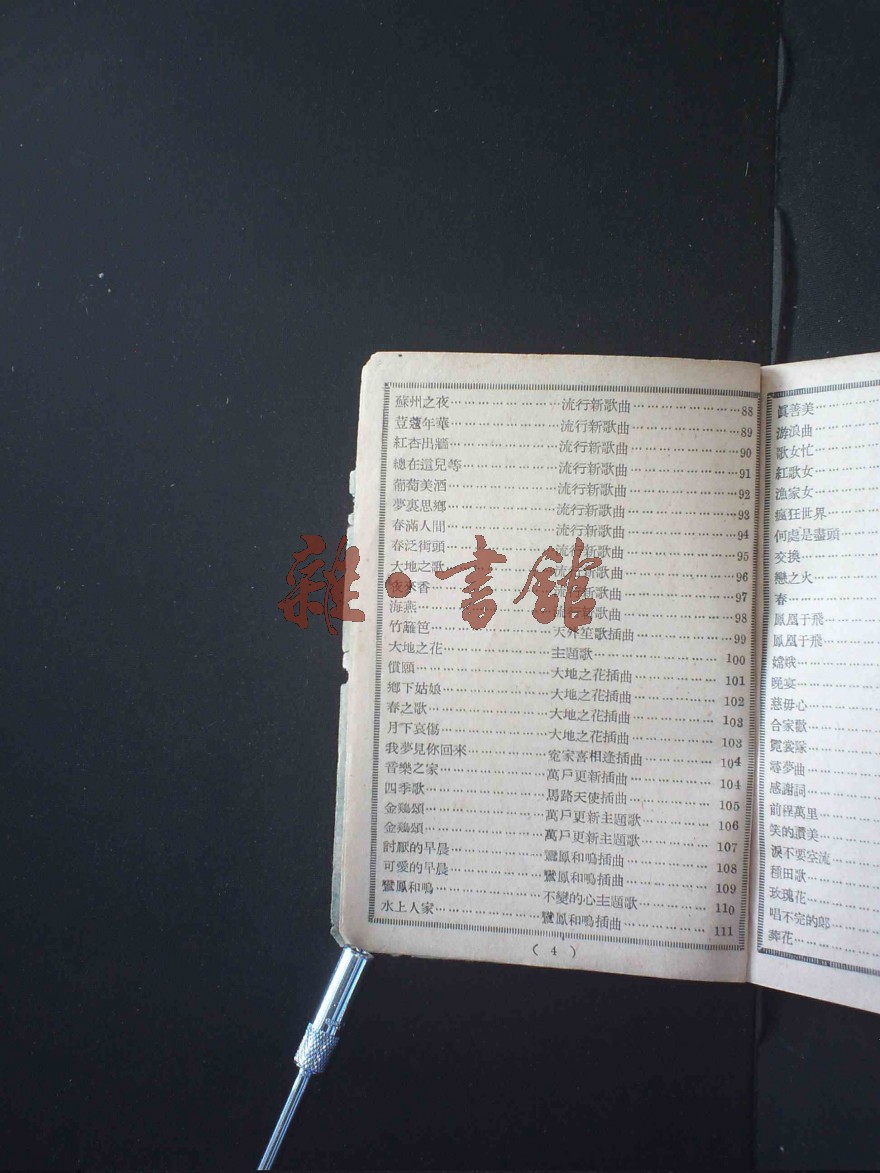 蘇州之夜……………流行新歌曲……………88
荳蔻年華……………流行新歌曲……………89
紅杏出牆……………流行新歌曲……………90
總在這兒等……………流行新歌曲……………91
葡萄美酒……………流行新歌曲……………92
夢裏思鄉……………流行新歌曲……………93
春滿人間……………流行新歌曲……………94
春泛街頭……………流行新歌曲……………95
大地之歌……………流行新歌曲……………96
夜來香……………流行新歌曲……………97
海燕……………流行新歌曲……………98
竹籬笆……………天外笙歌插曲……………99
大地之花……………主題歌……………100
償願……………大地之花插曲……………101
鄉下姑娘……………大地之花插曲……………102
春之歌……………大地之花插曲……………103
月下哀傷……………大地之花插曲……………103
我夢見你回來……………寃家喜相逢插曲……………104
音樂之家……………萬戶更新插曲……………104
四季歌……………馬路天使插曲……………105
金鷄頌……………萬戶更新主題歌……………106
金鷄頌……………萬戶更新主題歌……………107
討厭的早晨……………鸞鳳和鳴插曲……………108
可愛的早晨……………鸞鳳和鳴插曲……………109
鸞鳳和鳴……………不變的心主題歌……………110
水上人家……………鸞鳳和鳴插曲……………111
( 4 )
眞善美……
游浪曲……
歌女忙……
紅歌女……
漁家女……
瘋狂世界……
何處是盡頭
交換……
戀之火……
春……
鳳凰于飛……
鳳凰于飛……
嫦娥……
晚宴……
慈母心……
合家歡……
霓裳隊……
尋夢曲……
感謝詞……
前程萬里……
笑的讚美……
淚不要空流
種田歌……
玫瑰花……
唱不完的郎
葬花……
雜·書館